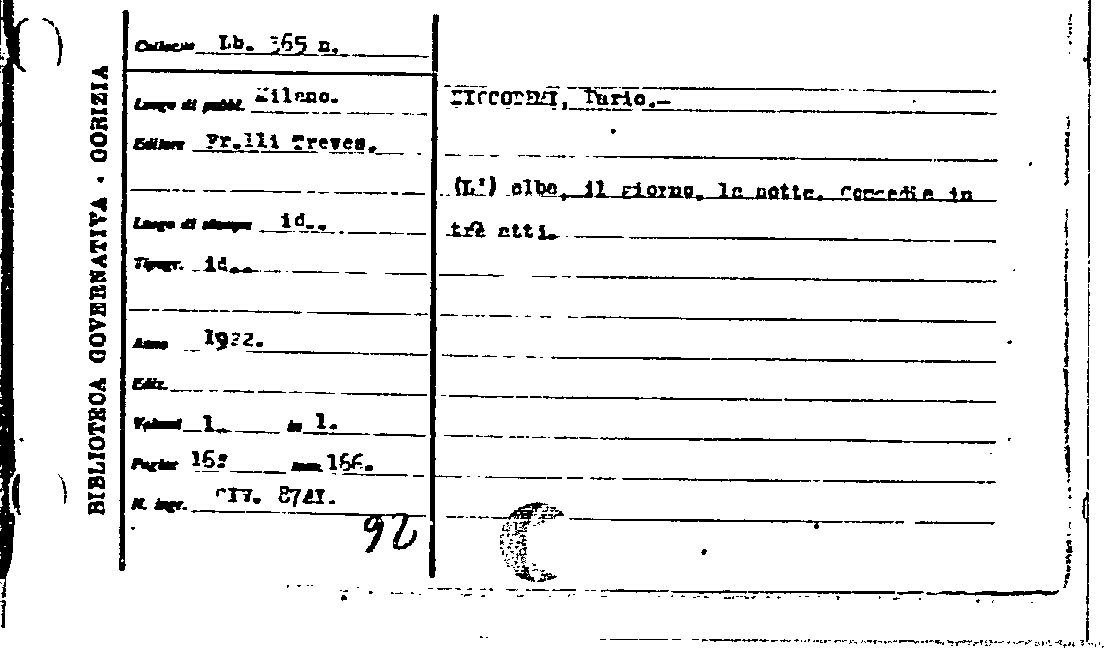 BIBLIOTECA GOVERNATIVA · GORIZIA
Collocaz. Lb. 565 n.
Luogo di pubbl. Milano.
Editore Fr.lli Treves.
Luogo di stampa id..
Tipogr. id..
Anno 1922.
Ediz.
Volumi 1. in 1.
Pagine mm. 166.
N. ingr. CIV.
92
NICCODEMI, Dario.—
(L') alba, il giorno, la notte. Commedia in
tre atti.
C